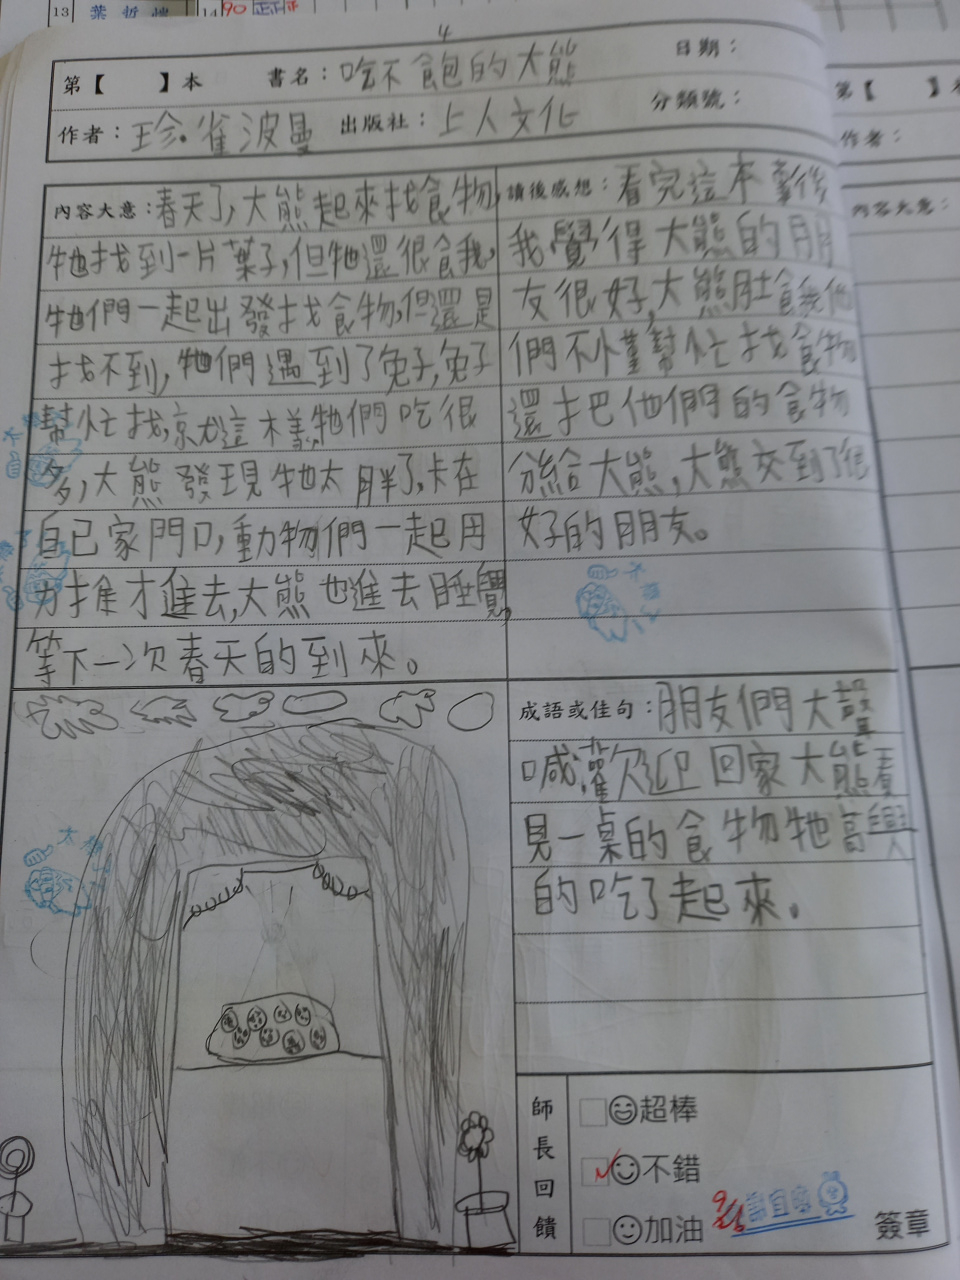 13 葉哲愷 14 90 正正正
4
第【 】本 書名：吃不飽的大熊 日期：
作者：珍．雀波曼 出版社：上人文化 分類號：
第【 】本
作者：
內容大意：
內容大意：春天了,大熊起來找食物,
牠找到一片葉子,但牠還很餓,
牠們一起出發找食物,但還是
找不到,牠們遇到了兔子,兔子
幫忙找,就這樣,牠們吃很
多,大熊發現牠太胖了,卡在
自已家門口,動物們一起用
力推才進去,大熊也進去睡覺,
等下一次春天的到來。
讀後感想：看完這本書後
我覺得大熊的朋
友很好,大熊肚餓他
們不懂幫忙找食物
還把他們的食物
分給大熊,大熊交到了很
好的朋友。
成語或佳句：朋友們大聲
喊灌欠迎回家大熊看
見一桌的食物牠高興
的吃了起來。
師長回饋
超棒
不錯
加油
9/26
簽章